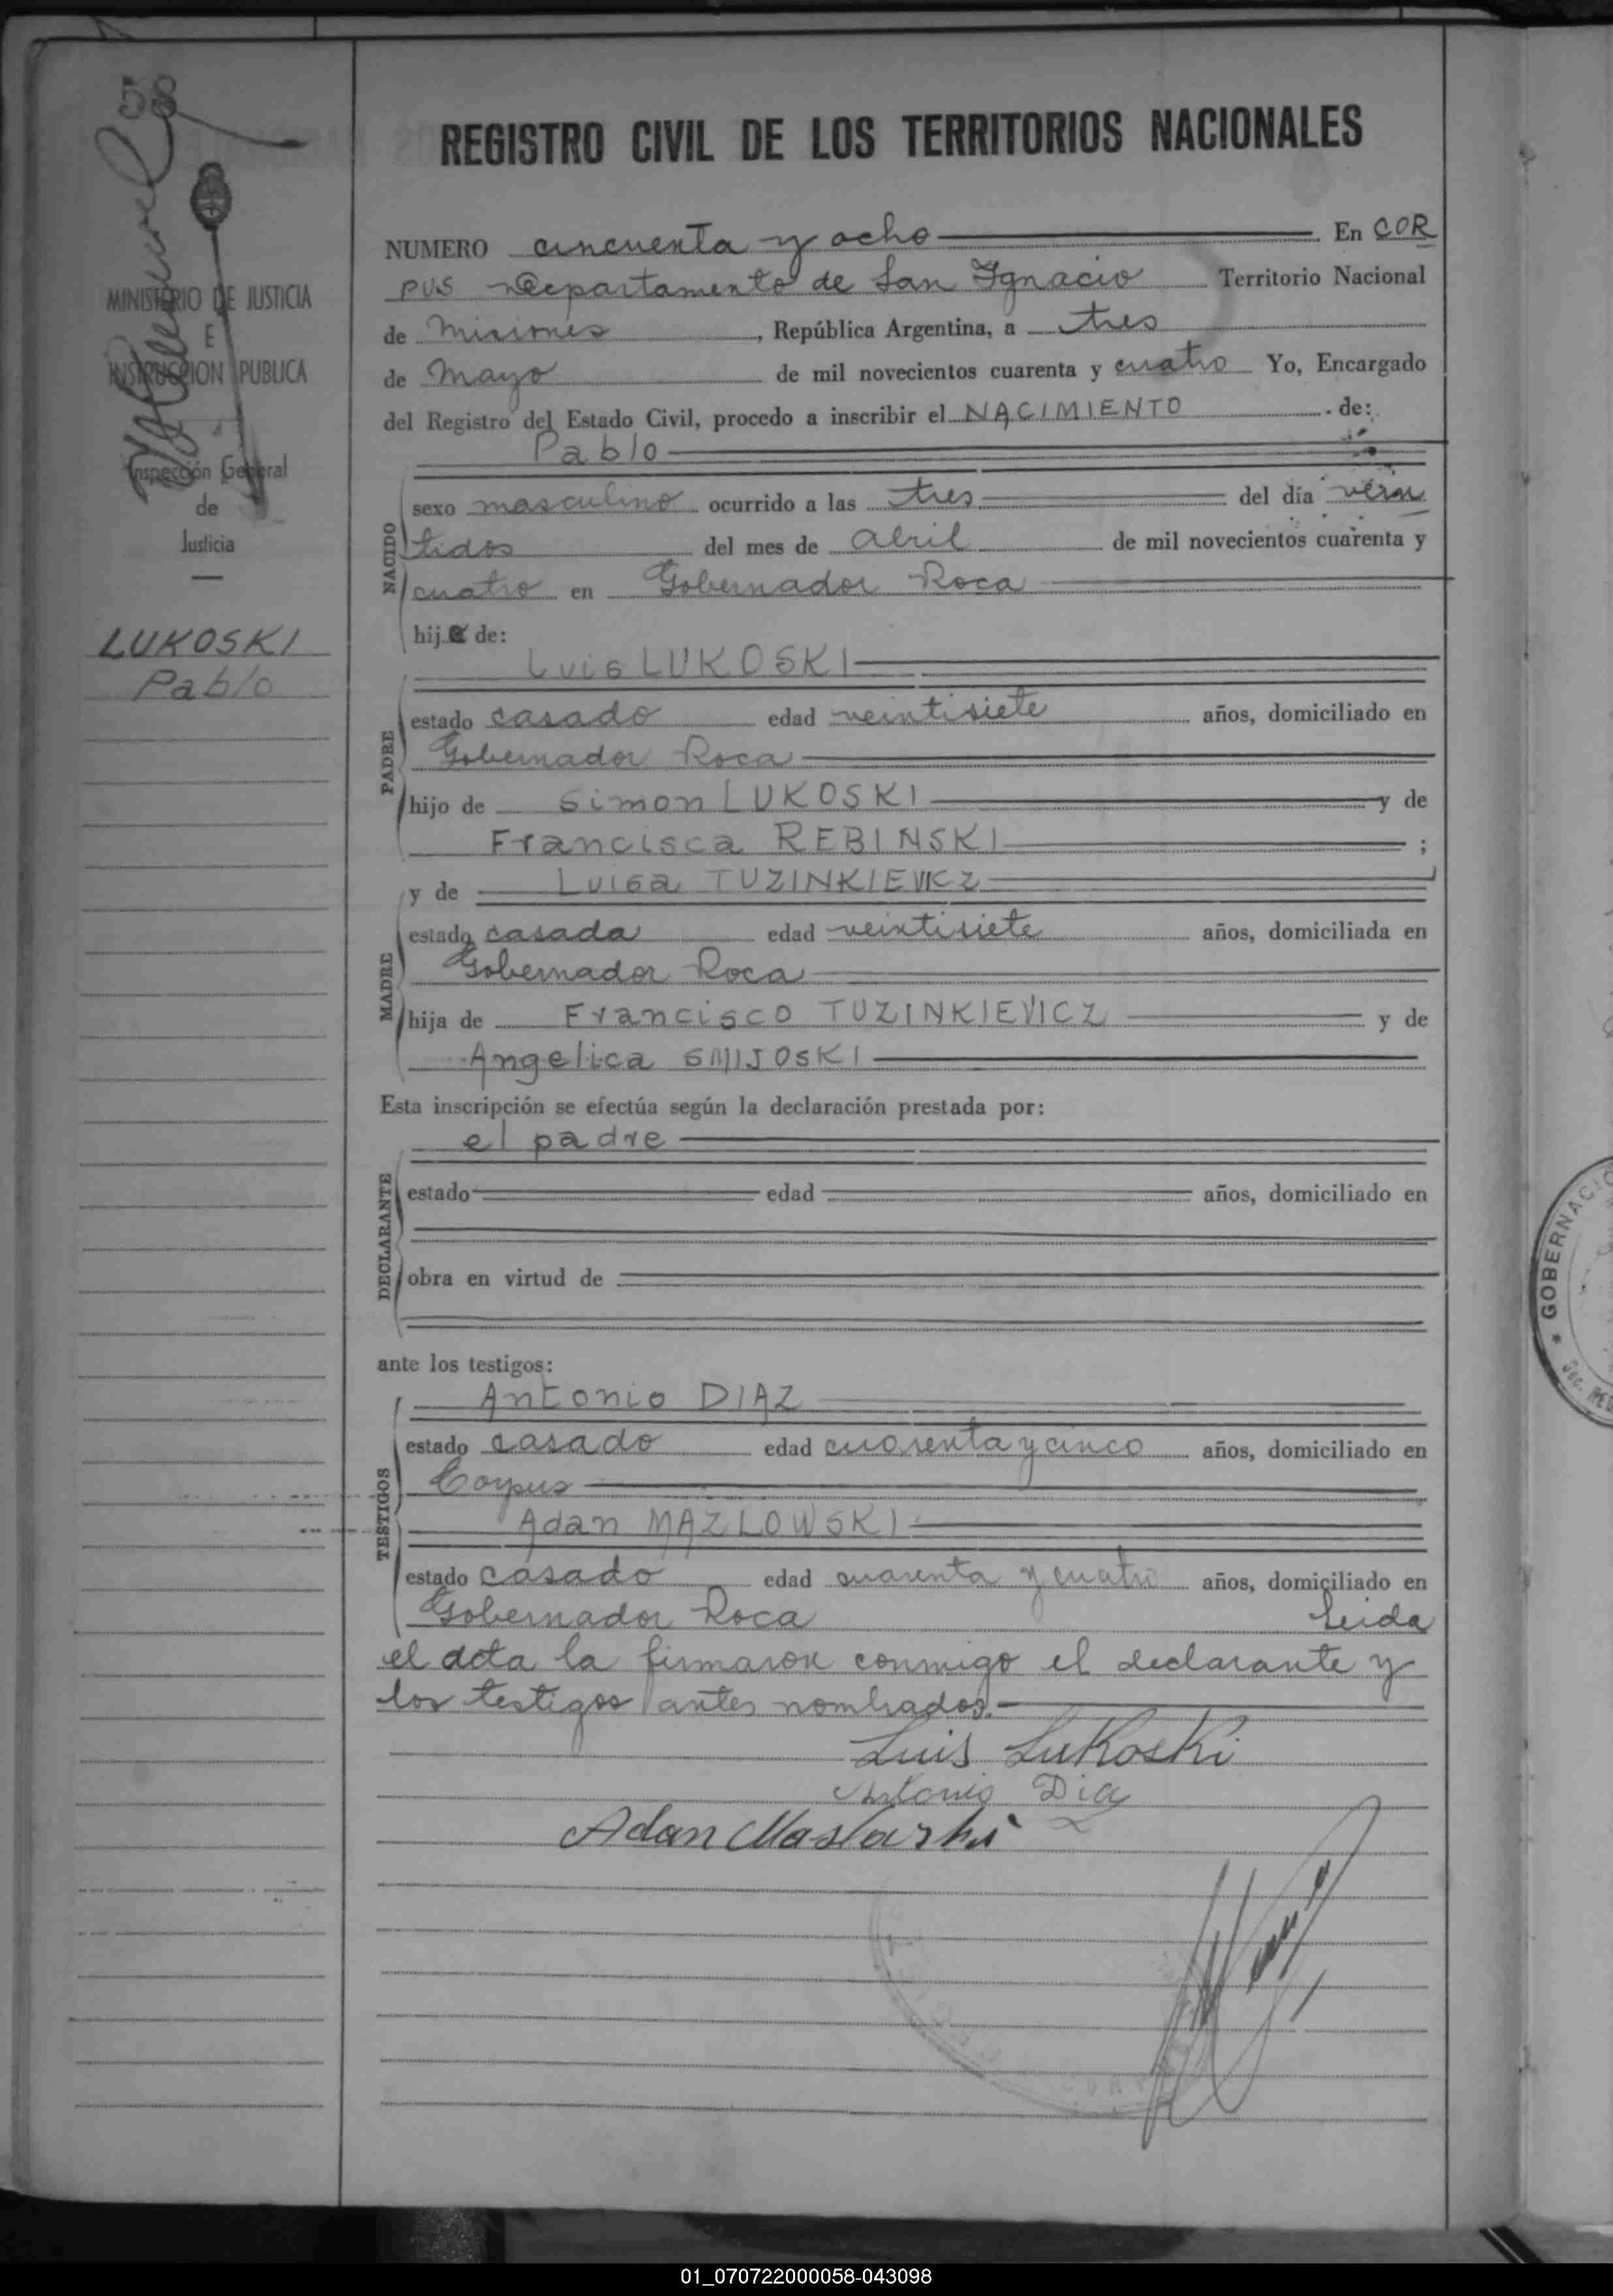 REGISTRO CIVIL DE LOS TERRITORIOS NACIONALES
MINISTERIO DE JUSTICIA
E
INSTRUCCION PUBLICA
Inspección General
de
Justicia
LUKOSKI
Pablo
NUMERO cincuenta y ocho En COR
PUS Departamento de San Ignacio Territorio Nacional
de Misiones, República Argentina, a tres
de Mayo de mil novecientos cuarenta y cuatro Yo, Encargado
del Registro del Estado Civil, procedo a inscribir el NACIMIENTO de:
Pablo
NACIDO
sexo masculino ocurrido a las tres del día vein
tidos del mes de abril de mil novecientos cuarenta y
cuatro en Gobernador Roca
hijo de:
Luis LUKOSKI
PADRE
estado casado edad veintisiete años, domiciliado en
Gobernador Roca
hijo de Simon LUKOSKI y de
Francisca REBINSKI ;
y de Luisa TUZINKIEVICZ
MADRE
estado casada edad veintisiete años, domiciliada en
Gobernador Roca
hija de Francisco TUZINKIEVICZ y de
Angelica SMIJOSKI
Esta inscripción se efectúa según la declaración prestada por:
el padre
DECLARANTE
estado edad años, domiciliado en
obra en virtud de
ante los testigos:
Antonio DIAZ
TESTIGOS
estado casado edad cuarenta y cinco años, domiciliado en
Corpus
Adan MAZLOWSKI
estado casado edad cuarenta y cuatro años, domiciliado en
Gobernador Roca Leida
el acta la firmaron conmigo el declarante y
los testigos antes nombrados.
Luis Lukoski
Antonio Diaz
Adan Maslowski
GOBERNACIO
01_070722000058-043098